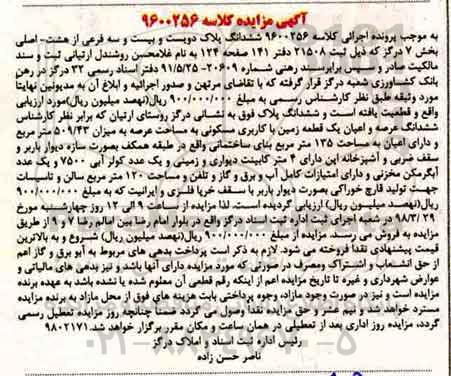 آگهی مزایده کلاسه ۹۶۰۰۲۵۶
به موجب پرونده اجرائی کلاسه ۹۶۰۰۲۵۶ ششدانگ پلاک دویست و بیست و سه فرعی از هشت- اصلی
بخش ۷ درگز که ذیل ثبت ۲۱۵۰۸ دفتر ۱۴۱ صفحه ۱۲۴ به نام غلامحسن روشندل ارتیانی ثبت و سند
مالکیت صادر و سپس برابرسند رهنی شماره ۲۰۶۰۹- ۹۱/۵/۲۵ دفتر اسناد رسمی ۳۲ درگز در رهن
بانک کشاورزی شعبه درگز قرار گرفته که با تقاضای مرتهن و صدور اجرائیه و ابلاغ آن به مدیونین نهایتاً
مورد وثیقه طبق نظر کارشناس رسمی به مبلغ ۹۰۰/۰۰۰/۰۰۰ ریال(نهصد میلیون ریال)مورد ارزیابی
واقع و قطعیت یافته است و ششدانگ پلاک فوق به نشانی درگز روستای ارتیان که برابر نظر کارشناس
ششدانگ عرصه و اعیان یک قطعه زمین با کاربری مسکونی به مساحت عرصه به میزان ۵۰۹/۴۳ متر مربع
و دارای اعیان به مساحت ۱۳۵ متر مربع بنای ساختمانی واقع در طبقه همکف بصورت سازه دیوار باربر و
سقف ضربی و آشپزخانه این دارای ۴ متر کابینت دیواری و زمینی و یک عدد کولر آبی ۷۵۰۰ و یک عدد
آبگرمکن مخزنی و دارای امتیازات کامل آب و برق و گاز و تلفن و مساحت ۱۲۰ متر مربع سالن و تاسیسات
جهت تولید قارچ خوراکی بصورت دیوار باربر با سقف خرپا فلزی و ایرانیت که به مبلغ ۹۰۰/۰۰۰/۰۰۰
ریال(نهصد میلیون ریال) ارزیابی گردیده است، لذا مزایده از ساعت ۹ الی ۱۲ روز چهارشنبه مورخ
۹۸/۳/۲۹ در شعبه اجرای ثبت اداره ثبت اسناد درگز واقع در بلوار امام رضا بین امام رضا ۷ و ۹ از طریق
مزایده به فروش می رسد. مزایده از مبلغ ۹۰۰/۰۰۰/۰۰۰ ریال (نهصد میلیون ریال) شروع و به بالاترین
قیمت پیشنهادی نقدا فروخته می شود. لازم به ذکر است پرداخت بدهی های مربوط به آبو برق و گاز اعم
از حق انشعاب و اشتراک ومصرف در صورتی که مورد مزایده دارای آنها باشد و نیز بدهی های مالیاتی و
عوارض شهرداری و غیره تا تاریخ مزایده اعم از اینکه رقم قطعی آن معلوم شده یا نشده باشد به عهده برنده
مزایده است و نیز در صورت وجود مازاد، وجوه پرداختی بابت هزینه های فوق از محل مازاد به برنده مزایده
مسترد خواهد شد و نیم عشر و حق مزایده نقداً وصول می گردد ضمناً چنانچه روز مزایده تعطیل رسمی
گردد، مزایده روز اداری بعد از تعطیلی در همان ساعت و مکان مقرر برگزار خواهد شد.۹۸۰۲۱۷۱
رئیس اداره ثبت اسناد و املاک درگز
ناصر حسن زاده